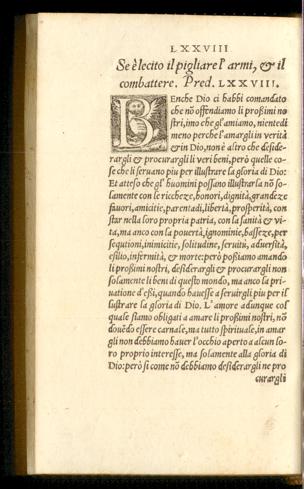 LXXVIII
Se è lecito il pigliare l'armi, & il
combattere. Pred. LXXVIII.
BEnche Dio ci habbi comandato
che nō offendiamo li proßimi no
stri, imo che gl'amiamo, nientedi
meno perche l'amargli in verità
& in Dio, non è altro che deside-
rargli & procurargli li veri beni, però quelle co-
se che li seruano piu per illustrare la gloria di Dio:
Et atteso che gl'huomini possano illustrarla nō so-
lamente con le richeze, honori, dignità, grandeze
fauori, amicitie, parentadi, libertà, prosperità, con
star nella loro propria patria, con la sanità & vi-
ta, ma anco con la pouertà, ignominie, baßeze, per
sequtioni, inimicitie, solitudine, seruitù, aduersità,
esilio, infermità, & morte: però poßiamo amando
li proßimi nostri, desiderargli & procurargli non
solamente li beni di questo mondo, ma anco la pri-
uatione d'eßi, quando hauesse a seruirgli piu per il
lustrare la gloria di Dio. L'amore adunque col
quale siamo obligati a amare li proßimi nostri, nō
douēdo essere carnale, ma tutto spirituale, in amar
gli non debbiamo hauer l'occhio aperto a alcun lo-
ro proprio interesse, ma solamente alla gloria di
Dio: però si come nō debbiamo desiderargli ne pro
curargli